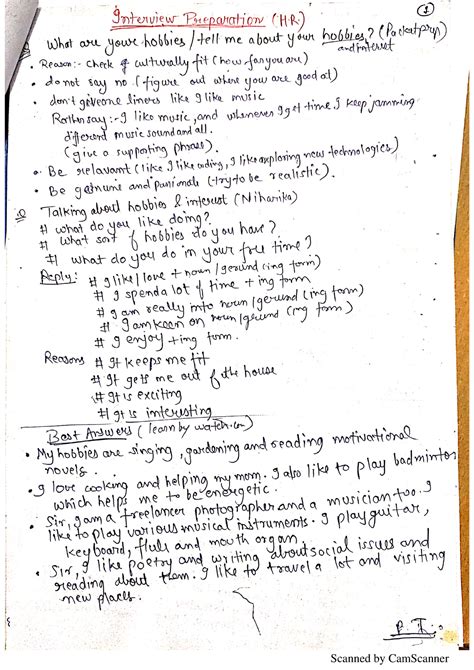 ①
Interview Preparation (HR)
What are youre hobbies / tell me about your hobbies? (Pocketprep)
and interest
• Reason:- Check of culturally fit (how far you are)
• do not say no (figure out where you are good at)
• don't give one liners like I like music
Rather say :- I like music, and whenever I get time I keep jamming
different music sound and all.
(give a supporting phrase).
• Be relavant (like I like coding, I like exploring new technologies)
• Be genuine and passionate (try to be realistic).
Talking about hobbies & interest (Niharika)
# what do you like doing?
# what sort of hobbies do you have?
# what do you do in your free time?
Reply: # I like/love + noun /gerund (ing form)
# I spend a lot of time + ing form
# I am really into noun /gerund (ing form)
# I am keen on noun /gerund (ing form)
# I enjoy + ing form.
Reasons # It keeps me fit
# It gets me out of the house
# It is exciting
# It is interesting
Best Answers (learn by watch-in)
• My hobbies are singing, gardening and reading motivational
novels.
• I love cooking and helping my mom. I also like to play badminton
which helps me to be energetic.
• Sir, I am a freelancer photographer and a musician too. I
like to play various musical instruments. I play guitar,
keyboard, flute and mouth organ.
• Sir, I like poetry and writing about social issues and
reading about them. I like to travel a lot and visiting
new places.
Scanned by CamScanner